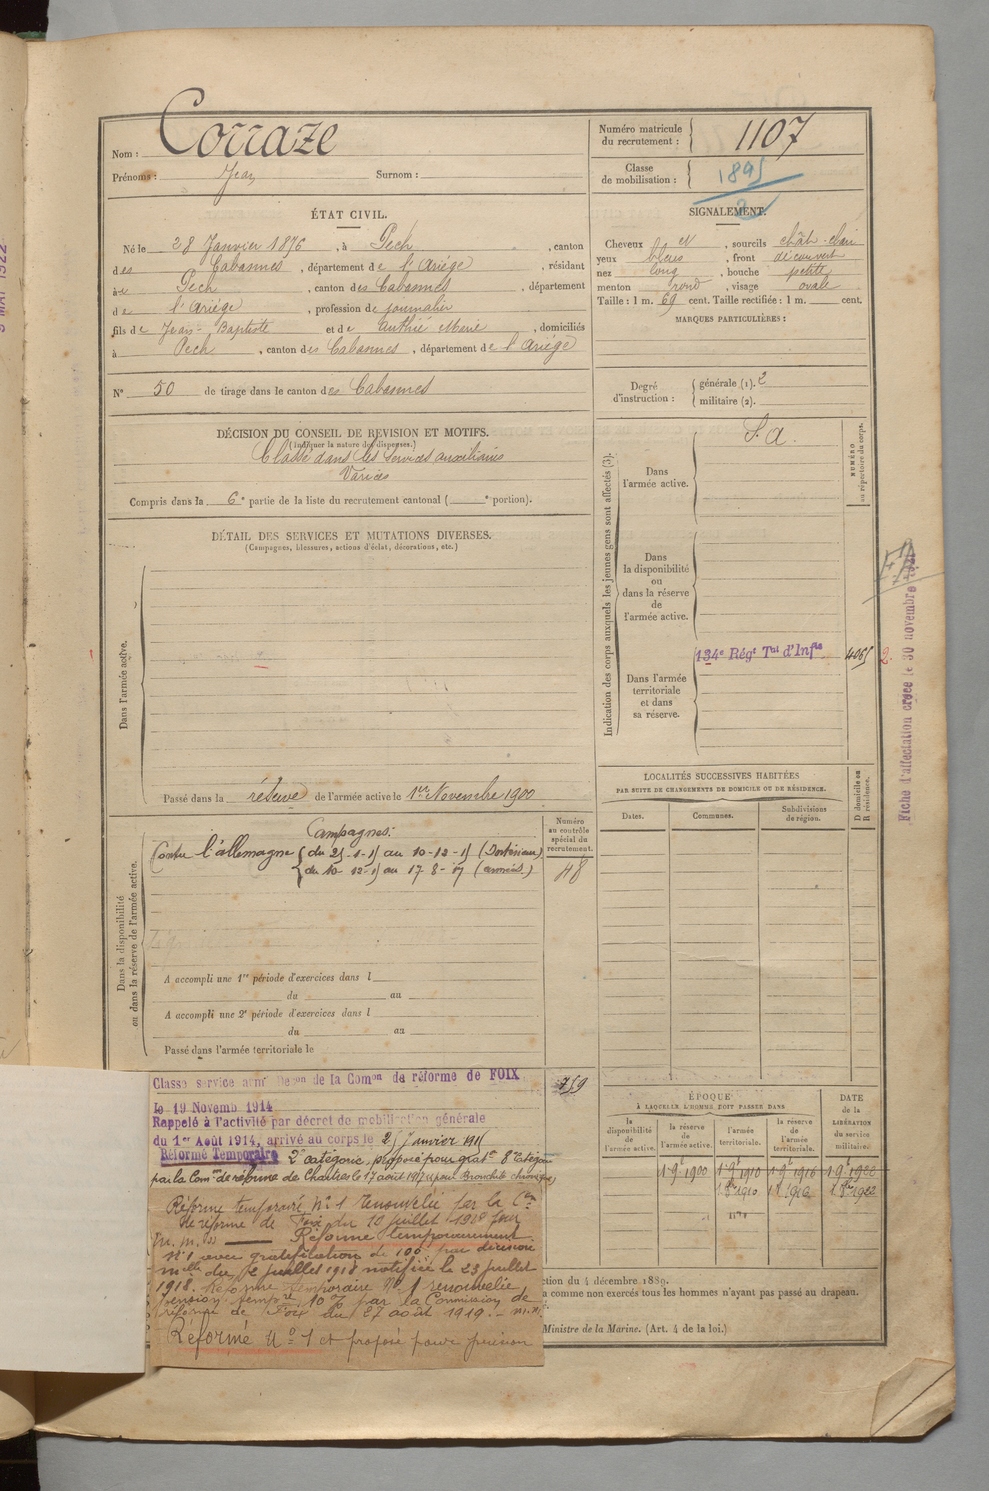 Nom : Corraze
Prénoms : Jean Surnom :
Numéro matricule du recrutement : 1107
Classe de mobilisation : 1895
2
ÉTAT CIVIL.
Né le 28 Janvier 1876, à Pech, canton
des Cabannes, département de l'Ariège, résidant
à Pech, canton des Cabannes, département
de l'Ariège, profession de journalier
fils de Jean-Baptiste et de Authié Marie, domiciliés
à Pech, canton des Cabannes, département de l'Ariège
N° 50 de tirage dans le canton des Cabannes
SIGNALEMENT.
Cheveux et, sourcils chât-clair
yeux bleus, front découvert
nez long, bouche petite
menton rond, visage ovale
Taille : 1 m. 69 cent. Taille rectifiée : 1 m. cent.
MARQUES PARTICULIÈRES :
Degré d'instruction : générale (1). 2
militaire (2).
DÉCISION DU CONSEIL DE REVISION ET MOTIFS.
(Indiquer la nature des dispenses.)
Classé dans les services auxiliaires
Varices
Compris dans la 6e partie de la liste du recrutement cantonal ( e portion).
DÉTAIL DES SERVICES ET MUTATIONS DIVERSES.
(Campagnes, blessures, actions d'éclat, décorations, etc.)
Dans l'armée active.
Passé dans la réserve de l'armée active le 1er Novembre 1900
Indication des corps auxquels les jeunes gens sont affectés (3).
NUMÉRO au répertoire du corps.
Dans l'armée active.
S. A.
Dans la disponibilité ou dans la réserve de l'armée active.
Dans l'armée territoriale et dans sa réserve.
134e Régt Tal d'Infie
4065
2.
Fiche d'affectation créée le 30 novembre
LOCALITÉS SUCCESSIVES HABITÉES
PAR SUITE DE CHANGEMENTS DE DOMICILE OU DE RÉSIDENCE.
D domicile ou R résidence.
Dates. Communes. Subdivisions de région.
Dans la disponibilité ou dans la réserve de l'armée active.
Numéro au contrôle spécial du recrutement.
Campagnes :
Contre l'allemagne (du 25-1-15 au 10-12-15 (Intérieur)
(du 10-12-15 au 17-8-17 (armées)
48
A accompli une 1re période d'exercices dans l
du au
A accompli une 2e période d'exercices dans l
du au
Passé dans l'armée territoriale le
759
Classé service armé Déson de la Comon de réforme de FOIX
le 19 Novemb 1914
Rappelé à l'activité par décret de mobilisation générale
du 1er Août 1914, arrivé au corps le 25 Janvier 1915
Réformé Temporaire 2e catégorie, proposé pour graton 8e catégorie
par la Comon de réforme de Chartres le 17 août 1917 (pour Bronchite chronique)
Réforme temporaire N° 1 renouvelée par la Con
de réforme de Foix du 10 juillet 1918 pour
Réforme temporairement
N° 1 avec gratification de 100f par décision
melle du 12 juillet 1918 notifiée le 23 juillet
1918. Réforme temporaire N° 1 renouvelée,
pension tempore 10% par la Commission de
réforme de Foix du 27 août 1919. - m.m.
Réformé N° 1 et proposé pour pension
ÉPOQUE
À LAQUELLE L'HOMME DOIT PASSER DANS
DATE de la LIBÉRATION du service militaire.
la disponibilité de l'armée active. la réserve de l'armée active. l'armée territoriale. la réserve de l'armée territoriale.
ction du 4 décembre 1889.
a comme non exercés tous les hommes n'ayant pas passé au drapeau.
Ministre de la Marine. (Art. 4 de la loi.)